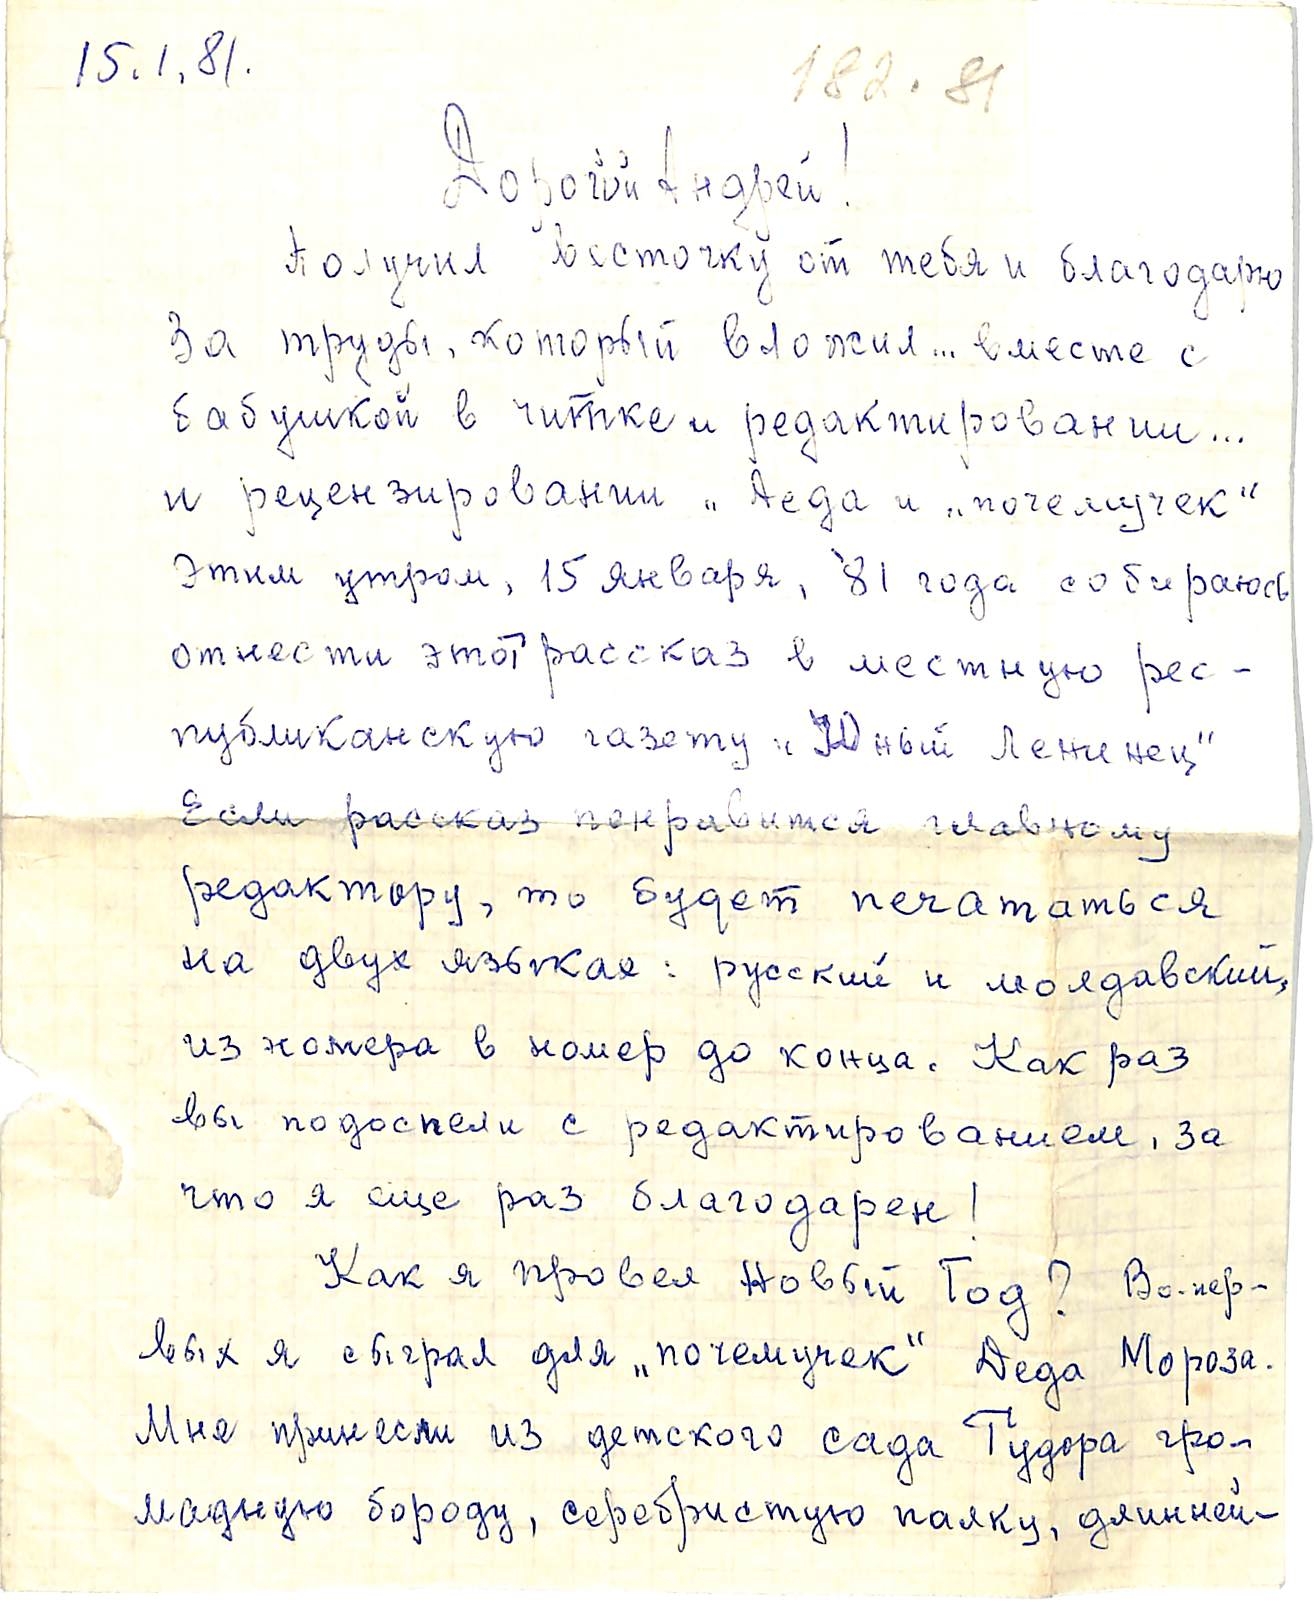 15.1.81.
182.81
Дорогой Андрей!
Получил весточку от тебя и благодарю
За труды, который вложил... вместе с
бабушкой в читке и редактировании...
и рецензировании „Деда и „почемучек“
Этим утром, 15 января, 81 года собираюсь
отнести этот рассказ в местную рес-
публиканскую газету „Юный Ленинец“
Если рассказ понравится главному
редактору, то будет печататься
на двух языках: русский и молдавский,
из номера в номер до конца. Как раз
вы подоспели с редактированием, за
что я еще раз благодарен!
Как я провел Новый Год? Во-пер-
вых я сыграл для „почемучек“ Деда Мороза.
Мне принесли из детского сада Тудора гро-
мадную бороду, серебристую палку, длинней-